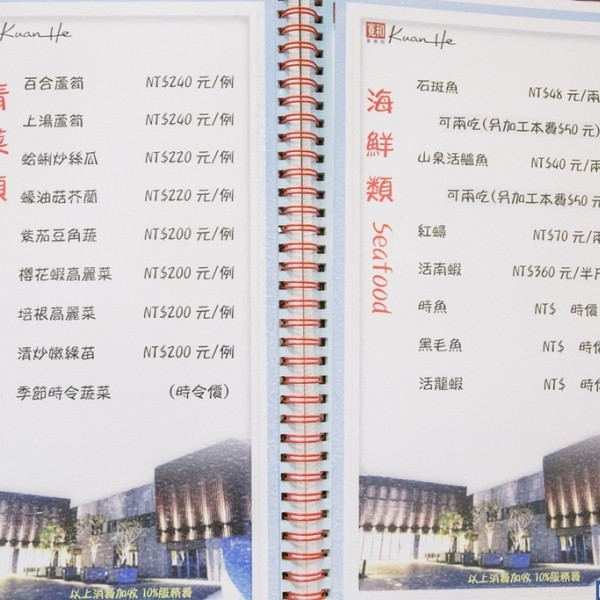 Kuan He
青菜類
百合蘆筍 NT$240 元/例
上湯蘆筍 NT$240 元/例
蛤蜊炒絲瓜 NT$220 元/例
蠔油菇芥蘭 NT$220 元/例
紫茄豆角蔬 NT$200 元/例
櫻花蝦高麗菜 NT$200 元/例
培根高麗菜 NT$200 元/例
清炒嫩綠苗 NT$200 元/例
季節時令蔬菜 (時令價)
以上消費加收 10%服務費
寬和 Kuan He
海鮮類 Seafood
石斑魚 NT$48 元/兩
可兩吃(另加工本費$50 元)
山泉活鱸魚 NT$40 元/兩
可兩吃(另加工本費$50 元
紅蟳 NT$70 元/兩
活南蝦 NT$360 元/半斤
時魚 NT$ 時價
黑毛魚 NT$ 時價
活龍蝦 NT$ 時價
以上消費加收 10%服務費